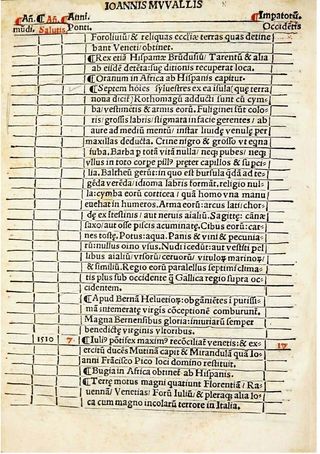 IOANNIS MVVALLIS
¶Añ. ¶Añ. ¶Anni. ¶Impatorũ.
mũdi. Salutis. Ponti. Occidẽtis
Foroliuiũ/ & reliquas eccliæ terras quas detine
bant Veneti/obtinet.
¶Rex etiã Hispanæ Brũdusiũ/ Tarentũ/ & alia
ab eisdẽ detẽta: suæ ditionis recuperat loca.
¶Oranum in Africa ab Hispanis capitur.
¶Septem hoies syluestres ex ea isula (que terra
noua dicit) Rothomagũ adducti sunt cũ cym-
ba/vestimẽtis & armis eorũ. Fuliginei sũt colo-
ris: grossis labris/ stigmata in facie gerentes / ab
aure ad mediũ mentũ/ instar liuidæ venulę per
maxillas deductа. Crine nigro & grosso vt equa
iuba. Barba p totã vitã nulla/ necq pubes/ necq
vllus in toto corpe pilꝰ pręter capillos & super
lia. Baltheũ gerũt: in quo est bursula q̃dã ad te
gẽda verẽda/ idioma labris formãt. religio nul-
la: cymba eorũ corticea / quã homo vna manu
euehat in humeros. Arma eorũ: arcus lati/ chor-
dę ex ĩtestinis / aut neruis aĩaliũ. Sagittę: cãnę
saxo/aut osse piscis acuminatę. Cibus eorũ: car-
nes tostę. Potus: aqua. Panis & vini & pecunia-
rũ: nullus oino vsus. Nudi icedũt: aut vestiti pel
libus aialiũ/ vrsorũ/ ceruorũ/ vitulorũ marinorũ
& similiũ. Regio eorũ parallelus septimi clima-
tis plus sub occidente q̃ Gallica regio supra oc-
cidentem.
¶Apud Bernã Heluetiorũ: obganiẽtes i purissi-
mã intemeratę virgis cõceptionẽ comburunt.
Magna Bernensibus gloria: iniuriarũ semper
benedictę virginis vltoribus.
1510 7 ¶Iuliꝰ põtifex maximꝰ recõciliat veneti: & ex- 17
ercitũ ducẽs Mutina capit & Mirandulã quã Io
anni Frãcisco Pico loci domino restituit.
¶Bugia in Africa obtinet ab Hispanis.
¶Terrę motus magni quatiunt Florentiã/ Ra-
uennã/ Venetias/ Forũ Iuliũ/ & pleraq̃ alia lo-
ca cum magno incolarũ terrore in Italia.